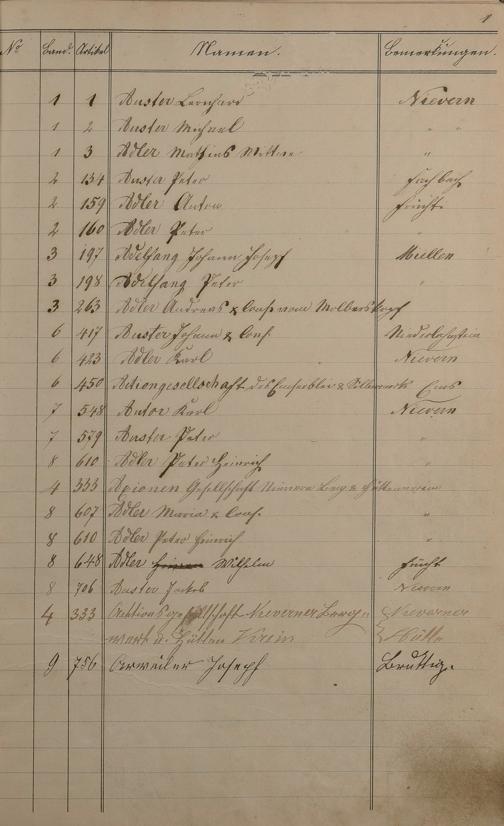 1
No Band. Artikel Namen. Bemerkungen.
1 1 Auster Leonhard Nievern
1 2 Auster Michael " "
1 3 Adler Mathias "
2 134 Auster Peter Fachbach
2 159 Adler Anton Frücht
2 160 Adler Peter "
3 197 Adelfang Johann Josepf Miellen
3 198 Adelfang Peter "
3 263 Adler Andreas & Cons. vom
6 417 Auster Johann & Cons. Niederlahnstein
6 423 Adler Karl Nievern
6 450 Actiengesellschaft des Emser Blei & Silberwerks Ems
7 548 Anton Karl Nievern
7 579 Auster Peter "
8 610 Adler Peter Heinrich "
4 333 Axionen Gesellschaft Berg & Hüttenverein
8 607 Adler Maria & Cons. "
8 610 Adler Peter Heinrich "
8 648 Adler Wilhelm Frücht
8 706 Auster Jakob Nievern
4 333 Aktiensgesellschaft Nieverner Berg- Nieverner
werk u. Hütten Verein Hütte
9 756 Arweiler Josepf Bruttig.